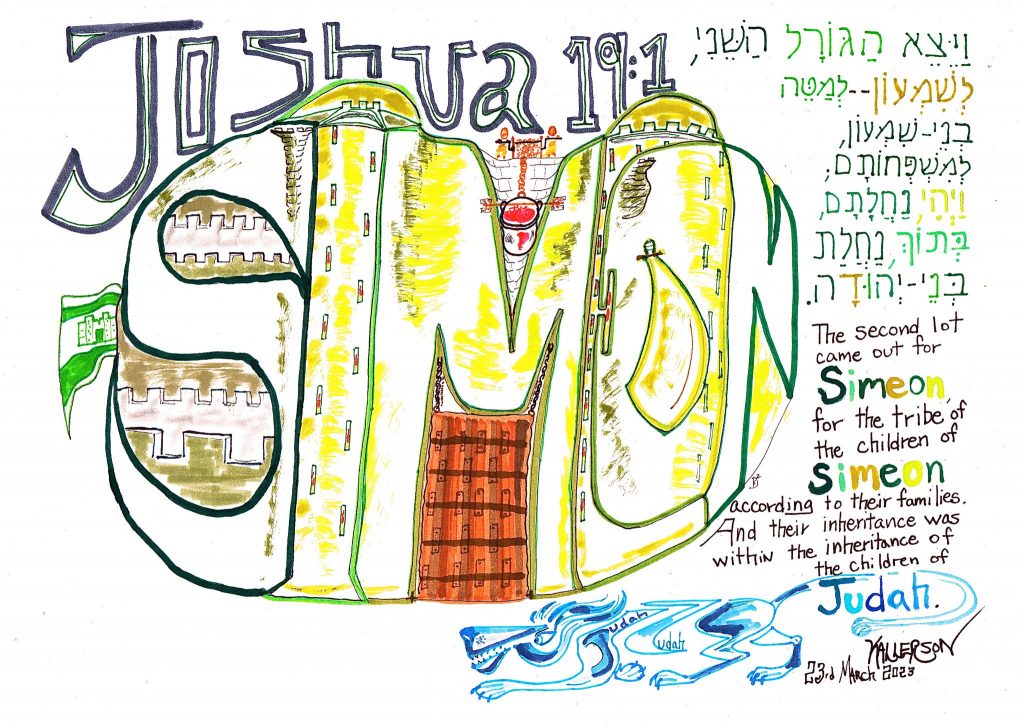 Joshua 19:1
SIMEON
וַיֵּצֵא הַגּוֹרָל הַשֵּׁנִי,
לְשִׁמְעוֹן--לְמַטֵּה
בְנֵי-שִׁמְעוֹן,
לְמִשְׁפְּחוֹתָם;
וַיְהִי, נַחֲלָתָם,
בְּתוֹךְ, נַחֲלַת
בְּנֵי-יְהוּדָה.
The second lot
came out for
Simeon,
for the tribe of
the children of
Simeon
according to their families.
And their inheritance was
within the inheritance of
the children of
Judah.
Judah
Judah
KALLERSON
23rd March 2023